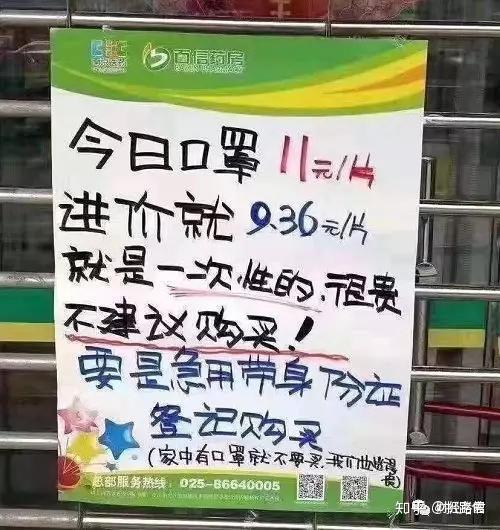 百信药房
今日口罩 11元/片
进价就 9.36元/片
就是一次性的.很贵
不建议购买!
要是急用带身份证
登记购买
(家中有口罩就不要买,我们也
总部服务热线:025-86640005
知乎